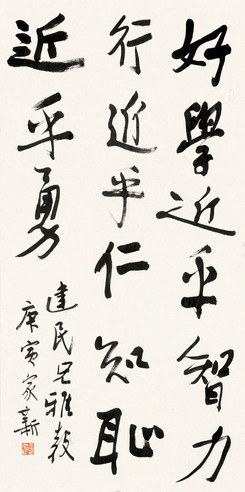 好學近乎智力
行近乎仁知恥
近乎勇
達民兄雅教
庚寅家新